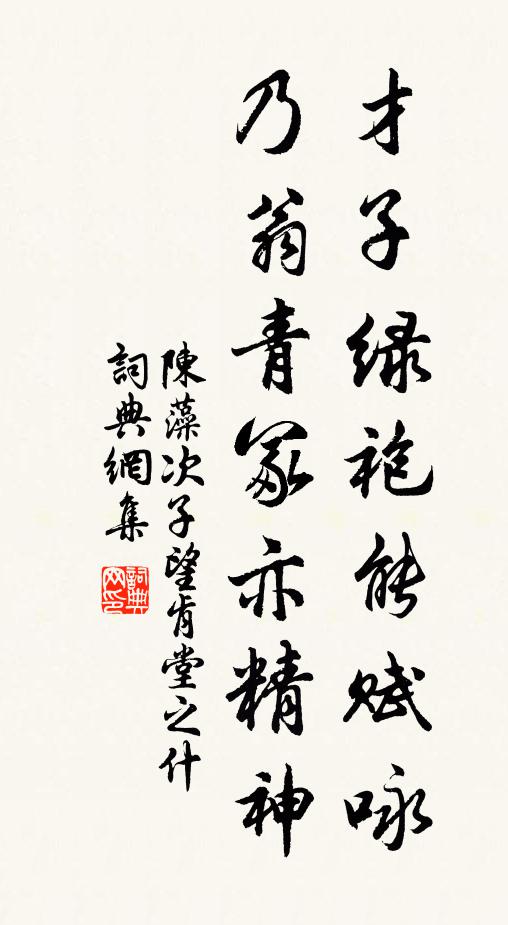 才子绿袍能赋咏
乃翁青冢亦精神
陳藻次子望肯堂之什
詞典網集
詞典網印